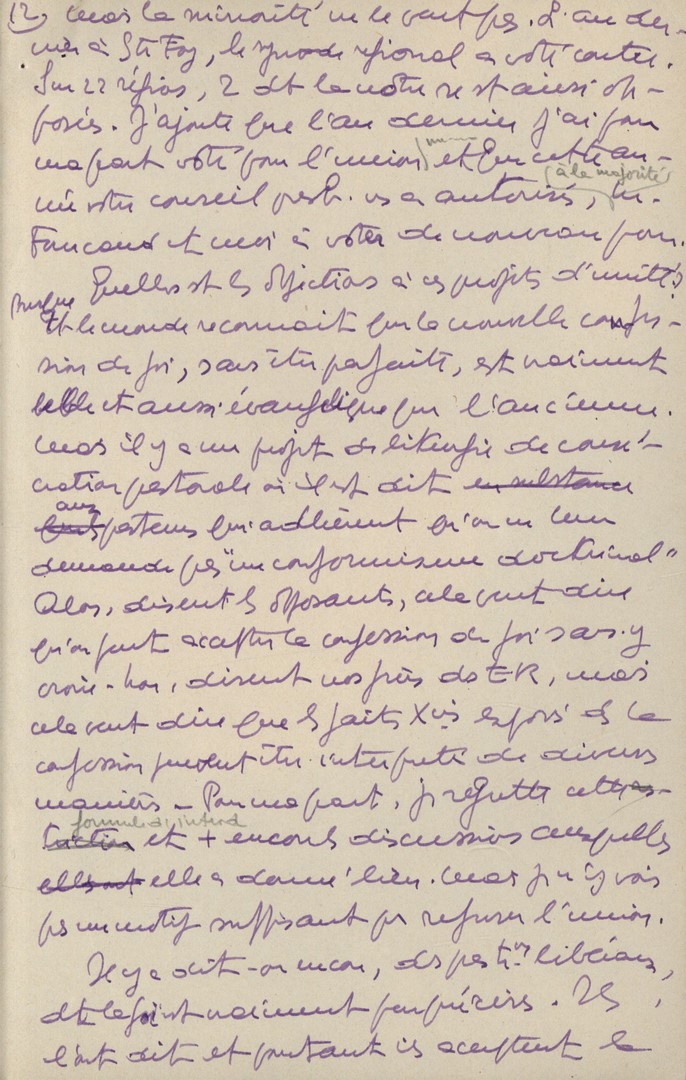 12) mais la minorité ne le veut pas. L'an der-
nier à Ste Foy, le synode régional a voté contre.
Sur 22 régions, 2 dt la nôtre se st ainsi op-
posés. J'ajoute que l'an dernier j'ai pour
ma part voté pour l'union et que cette an-
(à la majorité)
née votre conseil presb. ns a autorisés, Mr.
Foucaud et moi à voter de nouveau pour.
Quelles st les objections à ces projets d'unité?
Presque
tt le monde reconnaît que la nouvelle confes-
sion de foi, sans être parfaite, est vraiment
belle et aussi évangélique que l'ancienne.
Mais il y a un projet de liturgie de consé-
cration pastorale où il est dit en substance
aux
pasteurs qui adhèrent qu'on ne leur
demande pas "un conformisme doctrinal"
Alors, disent ls opposants, cela veut dire
qu'on peut accepter la confession de foi sans y
croire - Non, disent nos frères ds ER, mais
cela veut dire que ls faits Xns exposés ds la
confession peuvent être interprétés de diverses
manières - Pour ma part, je regrette cette
formule d'introd
et + encore ls discussions auxquelles
elle a donné lieu. Mais je n'y vois
pas un motif suffisant pr refuser l'union.
Il y a dit-on encore, ds pasteurs libéraux,
dt la foi est vraiment peu précise. Ils
l'ont dit et pourtant ils acceptent la